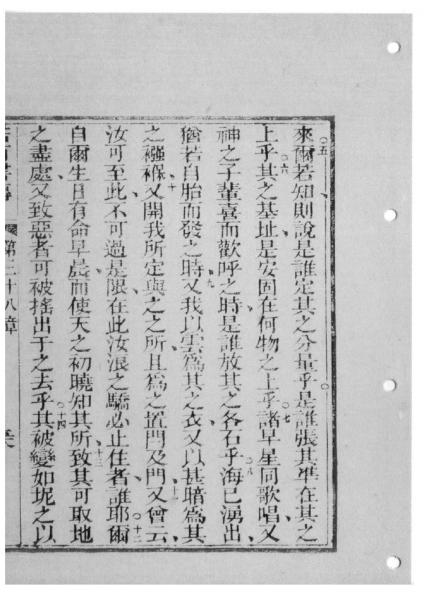 來爾若知則說是誰定其之分量乎是誰張其準在其之
上乎其之基址是安固在何物之上乎諸早星同歌唱又
神之子輩喜而歡呼之時是誰放其之各石乎海已湧出
猶若自胎而發之時又我以雲爲其之衣又以甚暗爲其
之襁褓又開我所定與之之所且爲之置門及門又曾云
汝可至此不可過是限在此汝浪之驕必止住者誰耶爾
自爾生日有命早晨而使天之初曉知其所致其可取地
之盡處又致惡者可被搖出于之去乎其被變如坭之以
第三十八章